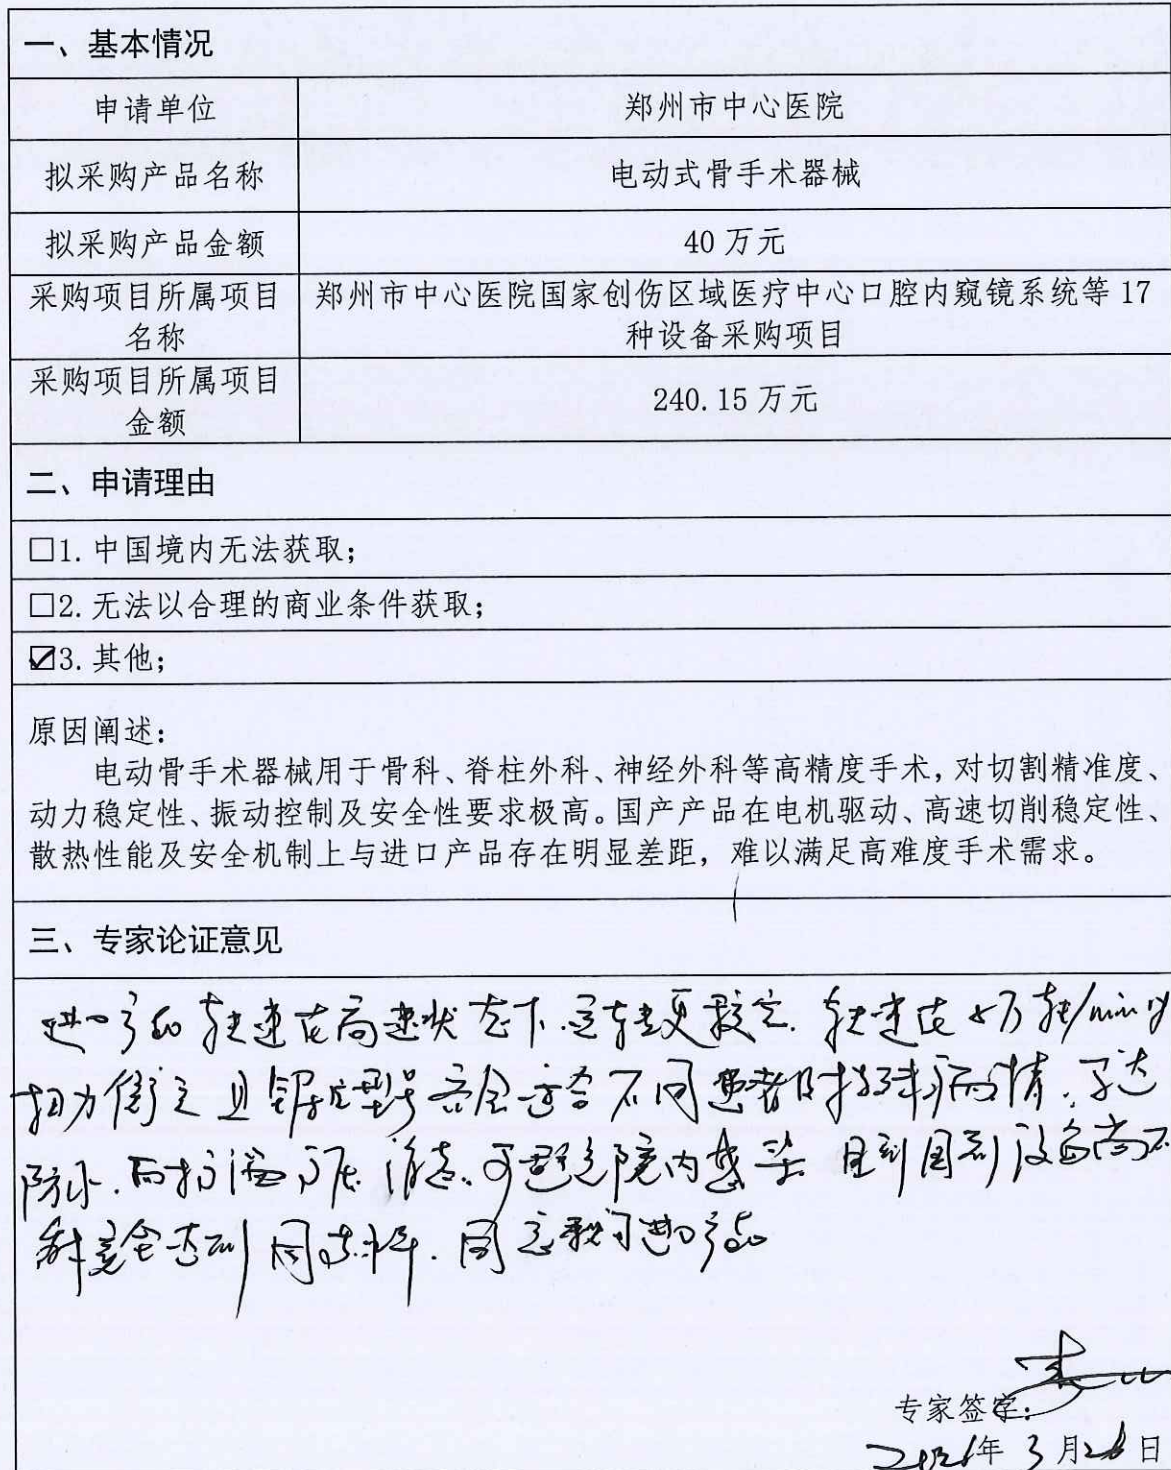 一、基本情况
申请单位 郑州市中心医院
拟采购产品名称 电动式骨手术器械
拟采购产品金额 40 万元
采购项目所属项目 郑州市中心医院国家创伤区域医疗中心口腔内窥镜系统等 17
名称 种设备采购项目
采购项目所属项目
金额 240.15 万元
二、申请理由
□1. 中国境内无法获取；
□2. 无法以合理的商业条件获取；
☑3. 其他；
原因阐述：
电动骨手术器械用于骨科、脊柱外科、神经外科等高精度手术，对切割精准度、
动力稳定性、振动控制及安全性要求极高。国产产品在电机驱动、高速切削稳定性、
散热性能及安全机制上与进口产品存在明显差距，难以满足高难度手术需求。
三、专家论证意见
进口产品转速在高速状态下运转更稳定. 转速在 万转/min
扭力 且锯片型号齐全适合不同患者及特殊病情.
防水. 高温 消毒. 可避免院内感染 目前国产设备尚不
能完全达到同等水平. 同意采购进口产品
专家签字：
年 3 月 日